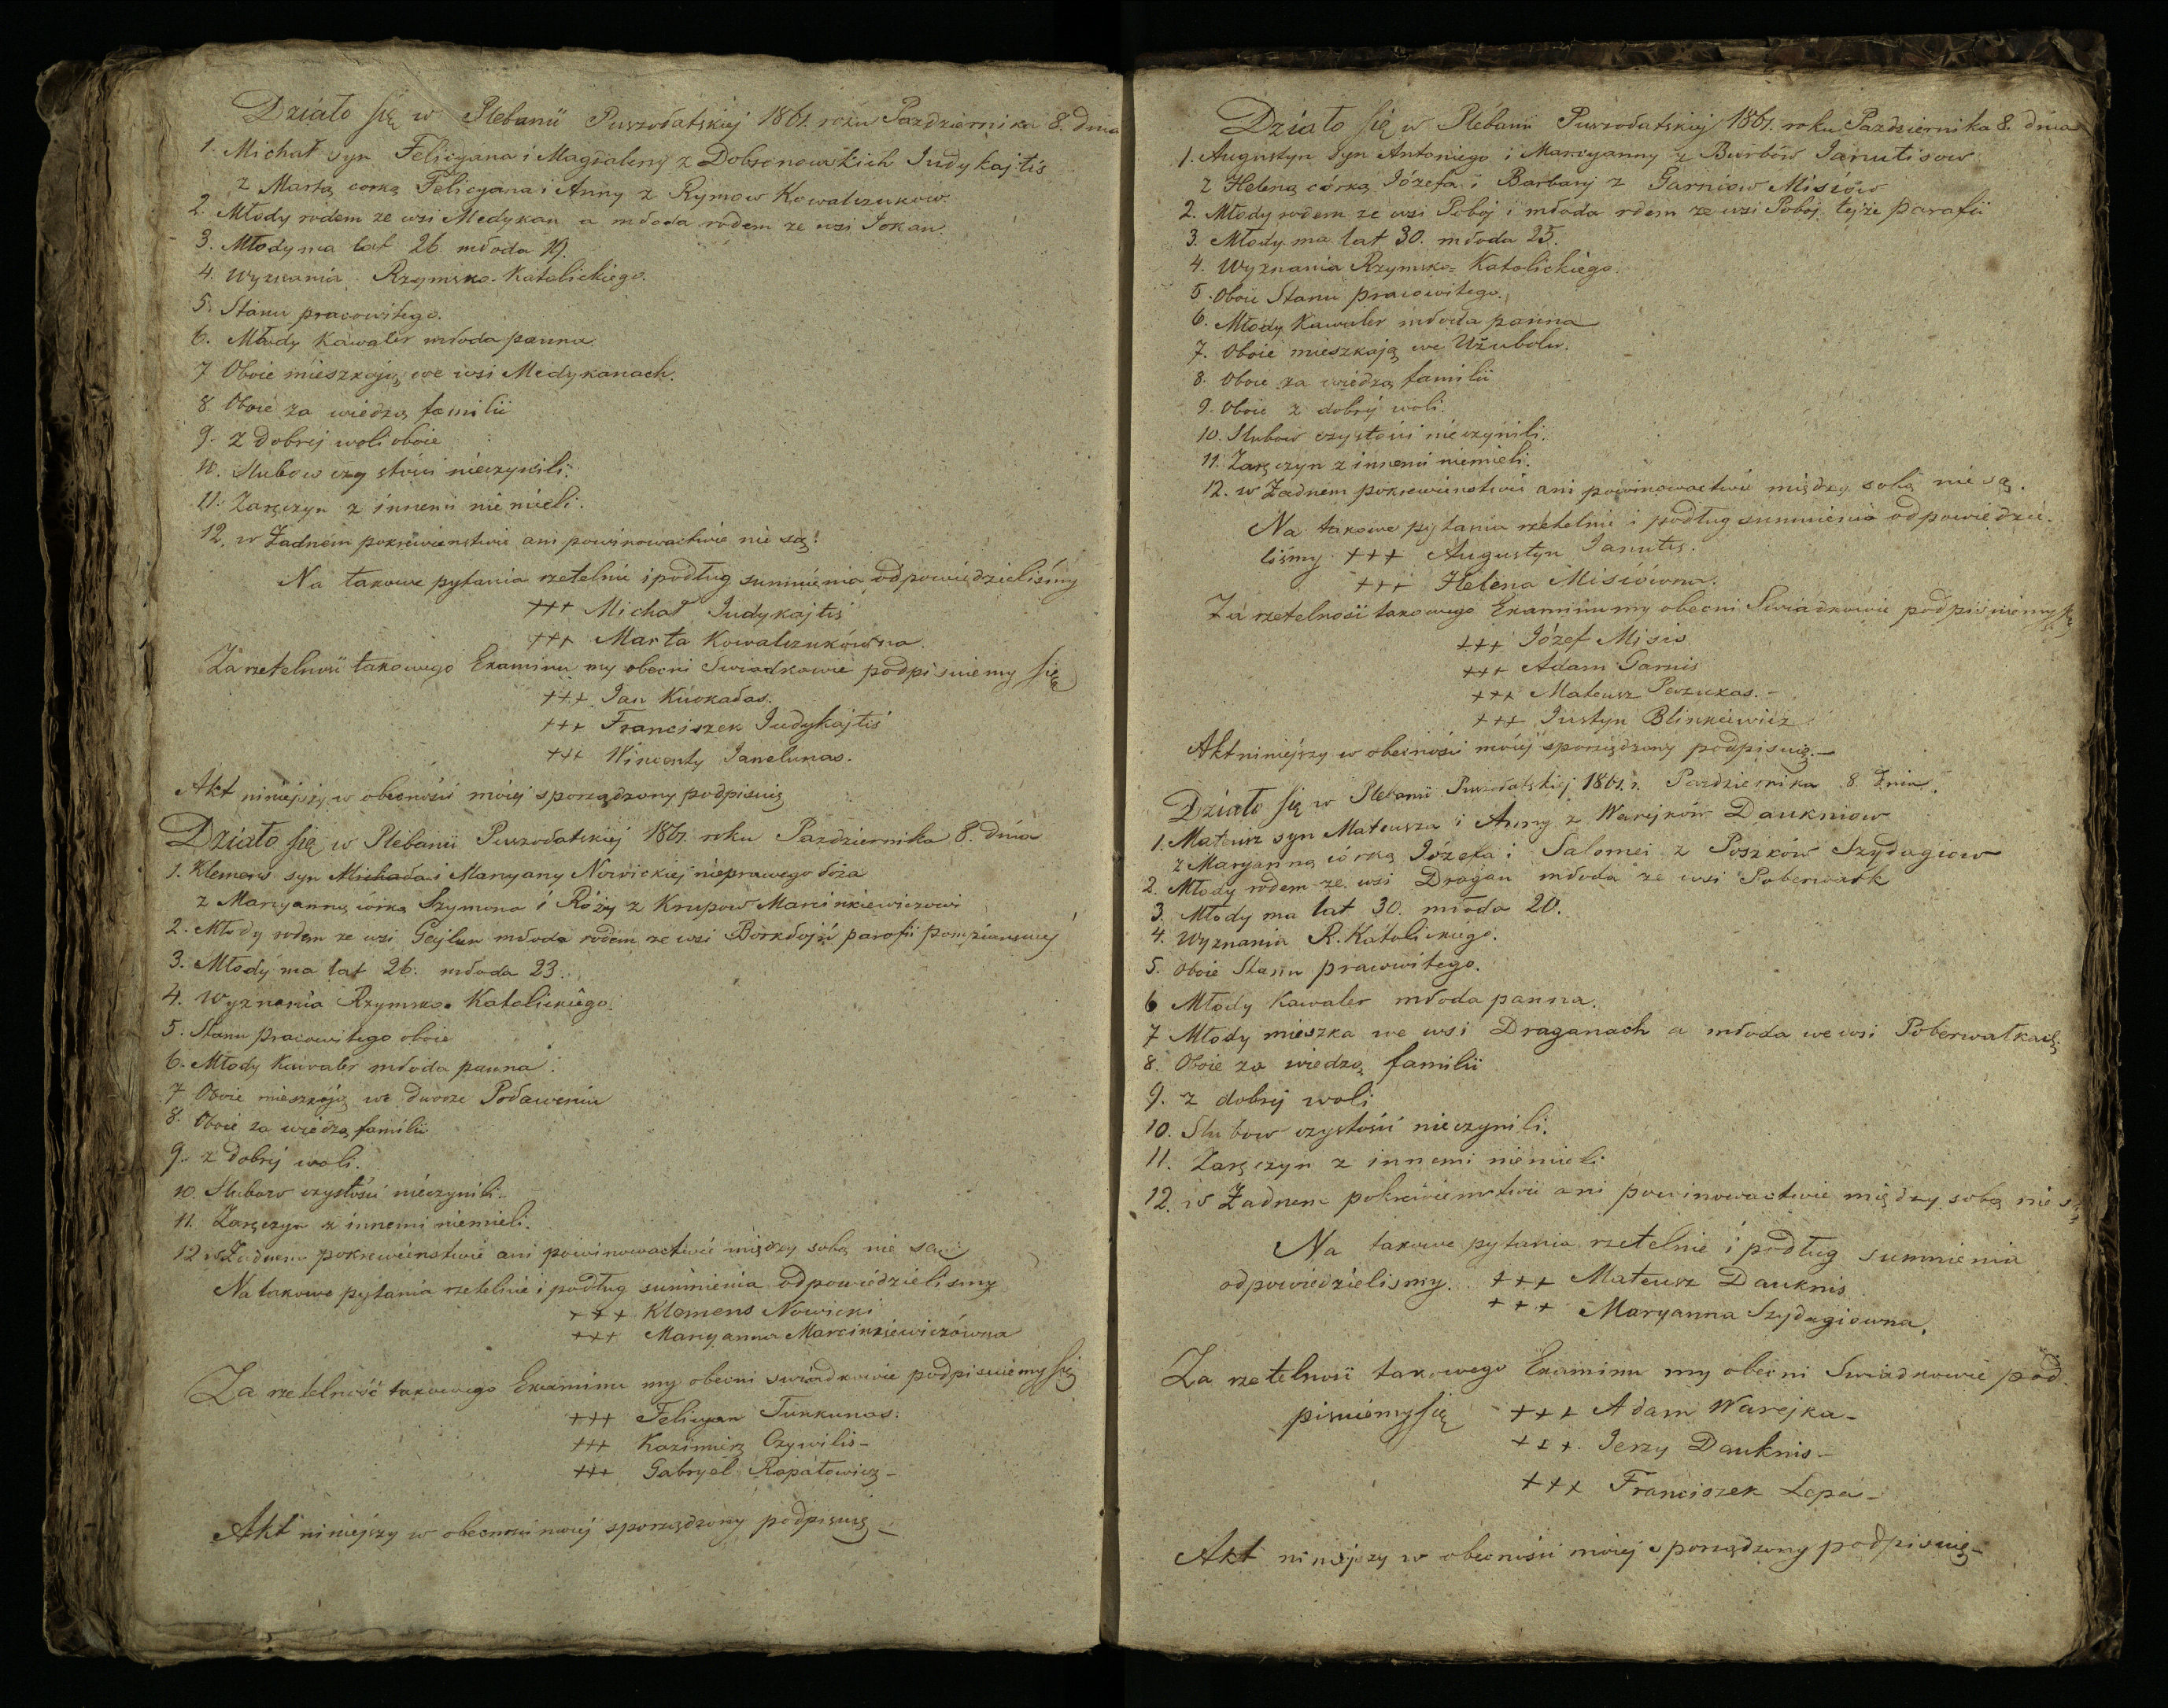 Działo się w Plebanii Puszołatskiej 1861. roku Pazdziernika 8. dnia
1. Michał syn Felicyana i Magdaleny z Dobszenowskich Judykajtis
z Martą corką Felicyana i Anny z Rymow Kowalczukow.
2. Młody rodem ze wsi Medykan a młoda rodem ze wsi Jokan.
3. Młody ma lat 26. młoda 19.
4. Wyznania Rzymsko-Katolickiego.
5. Stanu pracowitego.
6. Młody Kawaler młoda panna.
7 Oboie mieszkają we wsi Medykanach.
8. Oboie za wiedzą familii
9. Z dobrej woli oboie
10. Slubow czystości nieczynili.
11. Zaręczyn z innemi nie mieli.
12. w Żadnem pokrewienstwie ani powinowactwie nie są.
Na takowe pytania rzetelnie i podług sumnienia odpowiedzieliśmy
+++ Michał Judykajtis
+++ Marta Kowalczukówna.
Za rzetelność takowego Examinu my obecni Swiadkowie podpisuiemy się
+++ Jan Kuokałas.
+++ Franciszek Judykajtis
+++ Wincenty Janelunas.
Akt niniejszy w obecności moiej sporządzony podpisuię
Działo się w Plebanii Puszołatskiej 1861. roku Pazdziernika 8. dnia
1. Klemens syn Michała i Maryany Nowickiej nieprawego łoża
z Maryanną córką Szymona i Róży z Krupow Marcinkiewiczowi
2. Młody rodem ze wsi Gejlun młoda rodem ze wsi Borkłojń parafii pompianskiej
3. Młody ma lat 26. młoda 23.
4. Wyznania Rzymsko Katolickiego.
5. Stanu pracowitego oboie
6. Młody Kawaler młoda panna.
7 Oboie mieszkają we dworze Poławeniu
8. Oboie za wiedzą familii
9. z dobrej woli.
10. Slubow czystości nieczynili.
11. Zaręczyn z innemi niemieli.
12 w Żadnem pokrewienstwie ani powinowactwie między sobą nie są.
Na takowe pytania rzetelnie i podług sumnienia odpowiedzielismy
+++ Klemens Nowicki
+++ Maryanna Marcinkiewiczówna
Za rzetelność takowego Examinu my obecni swiadkowie podpisuiemy się
+++ Felicyan Tunkunas.
+++ Kazimierz Czywilis-
+++ Gabryel Rapałowicz-
Akt niniejszy w obecności moiej sporządzony podpisuię-
Działo się w Plebanii Puszołatskiej 1861. roku Pazdziernika 8. dnia
1. Augustyn syn Antoniego i Maryanny z Burbów Janutisow
z Heleną córką Józefa i Barbary z Garniow Misiów
2. Młody rodem ze wsi Poboj i młoda rdem ze wsi Poboj tejże parafii
3. Młody ma lat 30. młoda 25.
4. Wyznania Rzymsko-Katolickiego.
5. Oboie Stanu pracowitego.
6. Młody Kawaler młoda panna
7. Oboie mieszkają we Użubolu.
8. Oboie za wiedzą familii
9. Oboie z dobrej woli.
10. Slubow czystości nieczynili.
11. Zaręczyn z innemi niemieli.
12. w Żadnem pokrewienstwie ani powinowactwie między sobą nie są.
Na takowe pytania rzetelnie i podług sumnienia odpowiedzie-
liśmy. +++ Augustyn Janutis.
+++ Helena Misiówna.
Za rzetelność takowego Examinu my obecni Swiadkowie podpisuiemy się
+++ Józef Misis
+++ Adam Garnis
+++ Mateusz Peszukas.-
+++ Justyn Blinkiewicz
Akt niniejszy w obecności moiej sporządzony podpisuię.-
Działo się w Plebanii Puszołatskiej 1861. r. Pazdziernika 8. dnia.
1. Mateusz syn Mateusza i Anny z Warejków Daukniow
z Maryanną córką Józefa i Salomei z Poszków Szydagiow
2. Młody rodem ze wsi Dragan młoda ze wsi Poberwałk
3. Młody ma lat 30. młoda 20.
4. Wyznania R. Katolickiego.
5. Oboie Stanu pracowitego.
6 Młody Kawaler młoda panna.
7 Młody mieszka we wsi Draganach a młoda we wsi Poberwałkach
8. Oboie za wiedzą familii
9. z dobrej woli
10. Slubow czystości nieczynili.
11. Zaręczyn z innemi niemieli
12. w Żadnem pokrewienstwie ani powinowactwie między sobą nie są
Na takowe pytania rzetelnie i podług sumnienia
odpowiedzielismy. +++ Mateusz Dauknis
+++ Maryanna Szydagiowna.
Za rzetelność takowego Examinu my obecni Swiadkowie pod-
pisuiemy się +++ Adam Warejka-
+++ Jerzy Dauknis-
+++ Franciszek Lepa-
Akt niniejszy w obecności moiej sporządzony podpisuię-